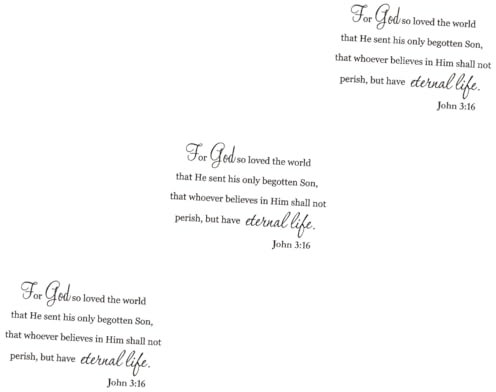 For God so loved the world
that He sent his only begotten Son,
that whoever believes in Him shall not
perish, but have eternal life.
John 3:16
For God so loved the world
that He sent his only begotten Son,
that whoever believes in Him shall not
perish, but have eternal life.
John 3:16
For God so loved the world
that He sent his only begotten Son,
that whoever believes in Him shall not
perish, but have eternal life.
John 3:16